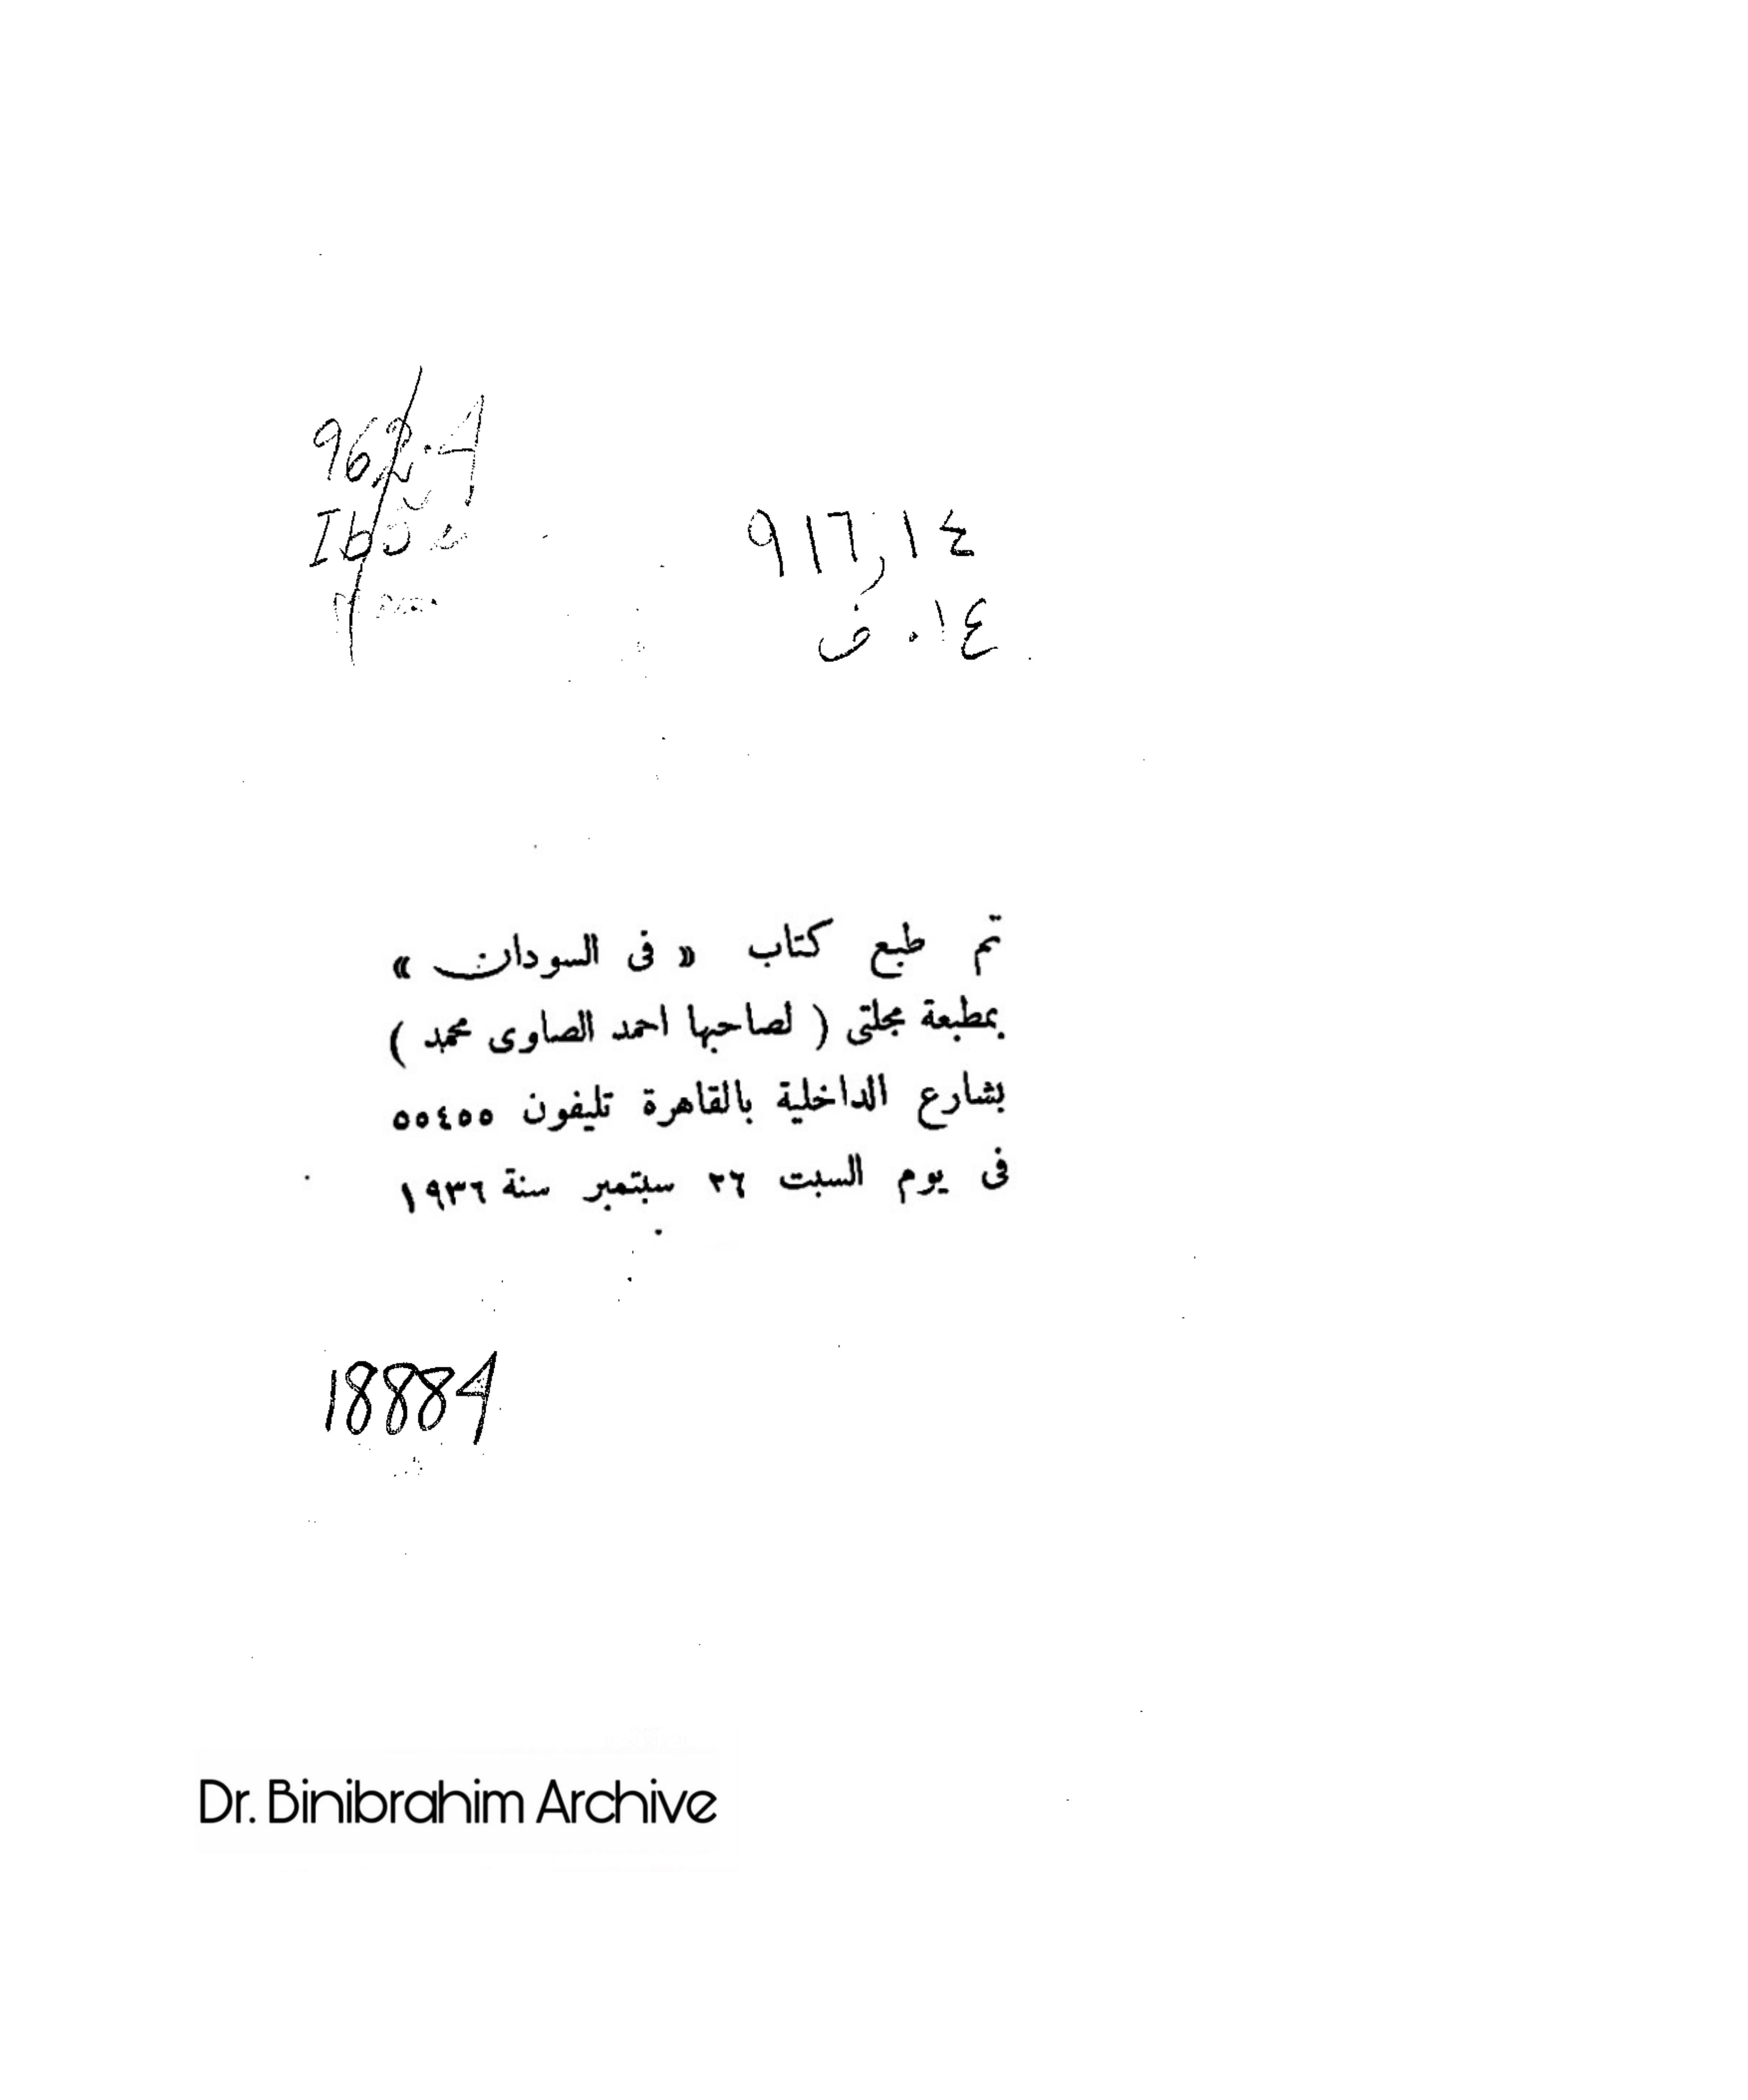 962.4
٩١٦,١٤
تم طبع كتاب « فى السودان »
بمطبعة مجلتى ( لصاحبها احمد الصاوى محمد )
بشارع الداخلية بالقاهرة تليفون ٥٥٤٥٥
فى يوم السبت ٢٦ سبتمبر سنة ١٩٣٦
18884
Dr. Binibrahim Archive